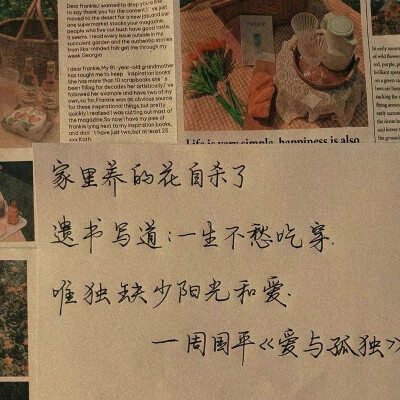 Dear frankie,I wanted to drop you a line
to say thank you for the content.
moved to the desert for a new job,and our
one supermarket stocks your magazine.
people who live out bush have good taste,
it seems. I read every issue outside in my
succulent garden and the authentic stories
from like-minded folk get me through my
week.Georgia
I dear frankie,My 81-year-old grandmother
has taught me to keep 'inspiration books'
She has more than 10 scrapbooks she's
been filling for decades her artistically,I've
followed her example and have two of my
own,so far,Frankie was an obvious source
for these inspirational things,but pretty
quickly I realised I was cutting out most of
the magazine.So now I have my piles of
frankie lying next to my inspiration books,
and don't have just two,but at least 25.
xxx Kath.
Life is very simple, happiness is also
家里养的花自杀了
遗书写道：一生不愁吃穿.
唯独缺少阳光和爱.
—周国平《爱与孤独》